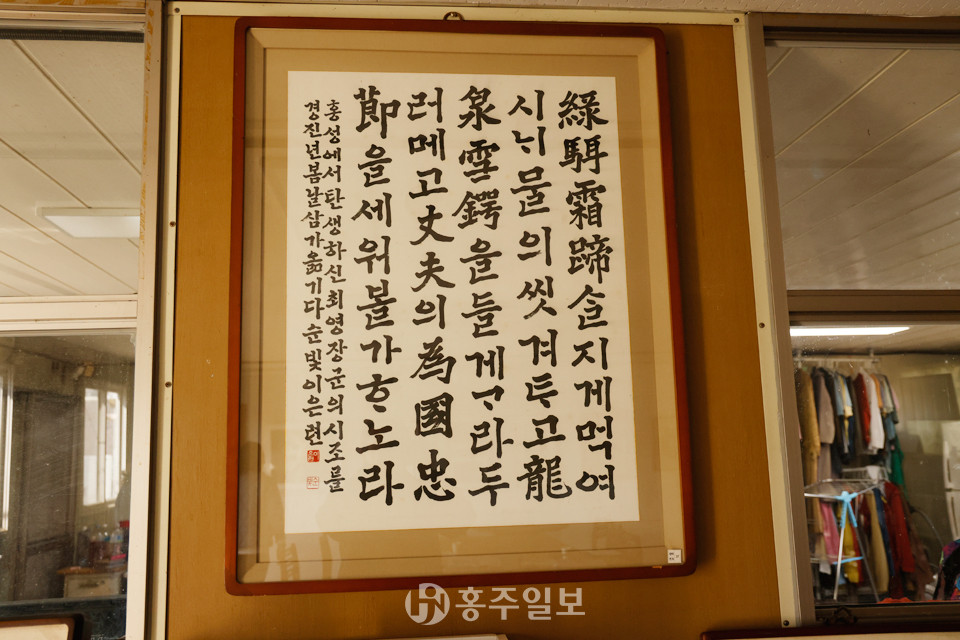 綠駬霜蹄ᄉᆞᆯ지게먹여
시ᄂᆡ물의씻겨ᄐᆞ고龍
泉雪鍔을들게ᄀᆞ라두
러메고丈夫의為國忠
節을세워볼가ᄒᆞ노라
홍성에서탄생하신최영장군의시조를
경진년봄날삼가옮기다순빛이은련
홍주일보